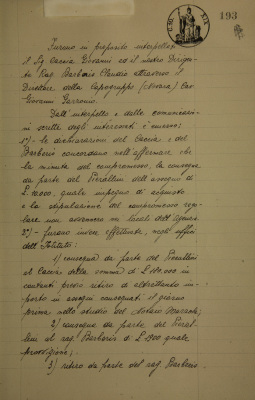 193
Furono in proposito interpellati
il Sig. Caccia Giovanni ed il nostro Dirigen-
te Rag. Barberis Claudio attraverso il
Direttore della Capogruppo (Novara) Cav.
Giovanni
Dall'interpello e dalle comunicazio-
ni scritte degli interessati è emerso:
1°) - le dichiarazioni del Caccia e del
Barberis concordano nell'affermare che
la minuta del compromesso, la consegna
da parte del Pierallini dell'assegno di
L. quale impegno di acquisto
e la stipulazione del compromesso rego-
lare non avvennero nei locali dell'
2°) - furono invece effettuate, negli uffici
dell'Istituto:
1) consegna da parte del Pierallini
al Caccia della somma di L. in
contanti presso ritiro di altrettanto im-
porto in assegni consegnati il giorno
prima nello studio del Notaio
2) consegna da parte del Pieral-
lini al rag. Barberis di L. quale
provvigione;
3) ritiro da parte del rag. Barberis